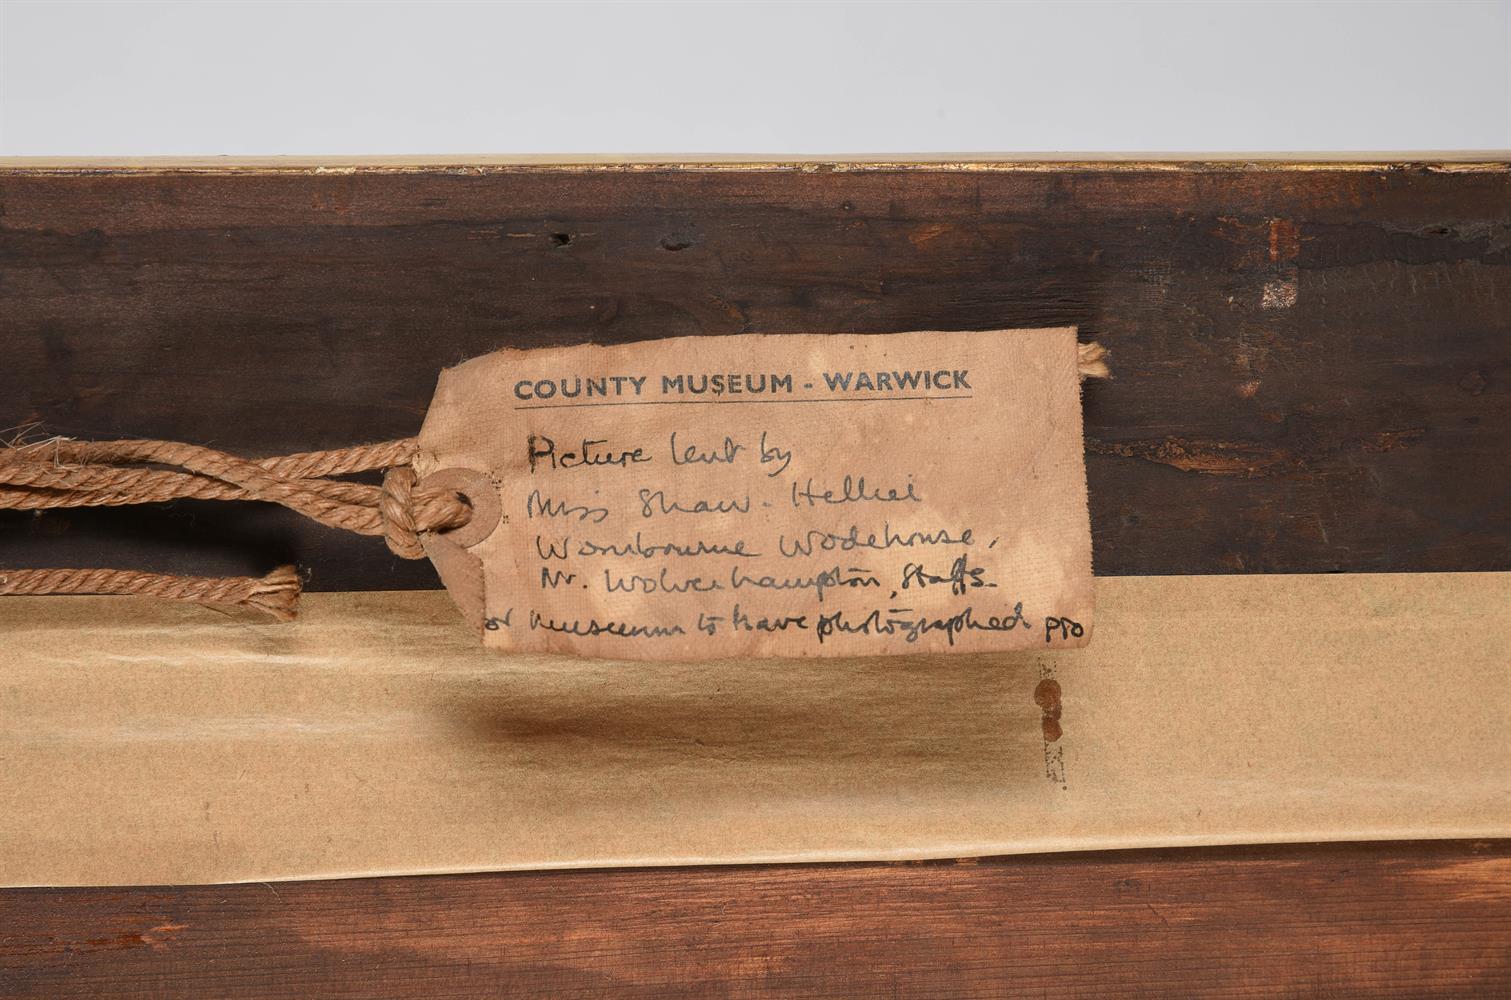 COUNTY MUSEUM - WARWICK
Picture lent by
Miss Shaw-Hellier
Wombourne Wodehouse,
Nr. Wolverhampton, Staffs.
or museum to have photographed PTO